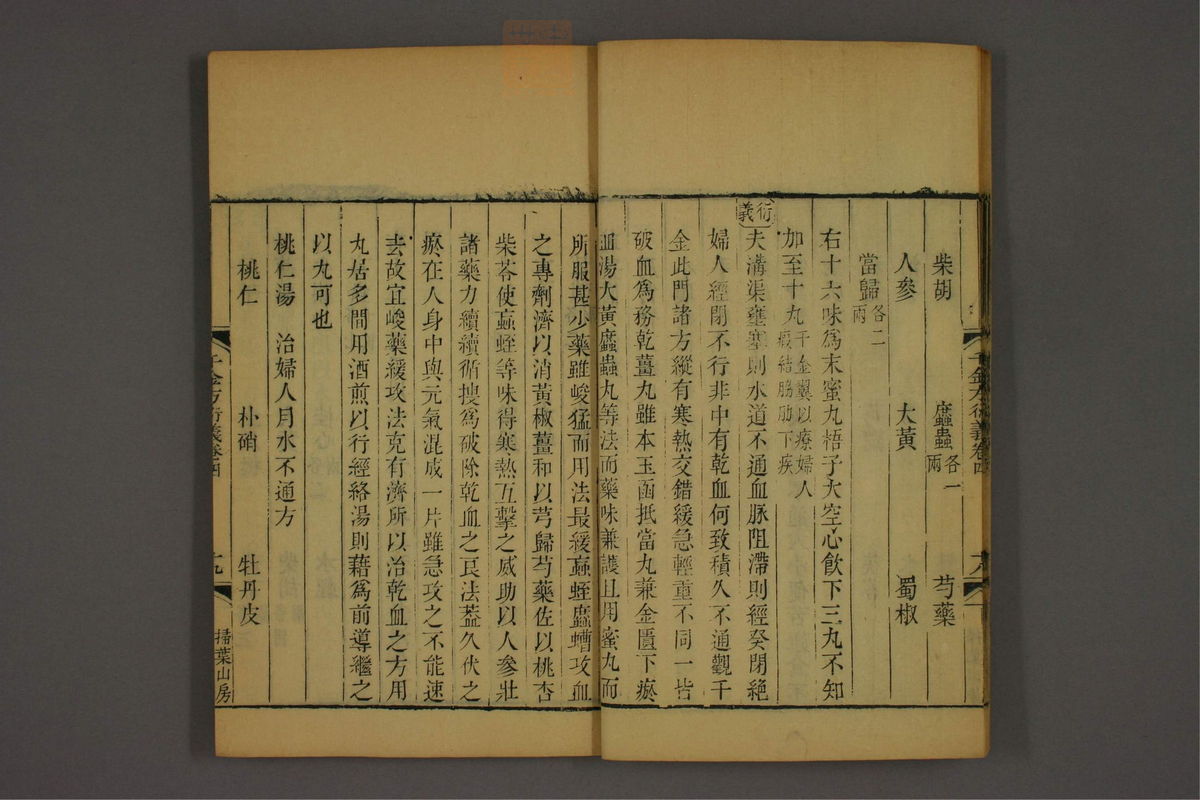 柴胡 䗪蟲各一兩 芍藥
人參 大黃 蜀椒
當歸各二兩
右十六味爲末蜜丸梧子大空心飲下三丸不知
加至十丸千金翼以療婦人瘕結脇肋下疾
衍義
夫溝渠壅塞則水道不通血脈阻滯則經癸閉絶
婦人經閉不行非中有乾血何致積久不通觀千
金此門諸方縱有寒熱交錯緩急輕重不同一皆
破血爲務乾薑丸雖本玉函抵當丸兼金匱下瘀
血湯大黃䗪蟲丸等法而藥味兼護且用蜜丸而
所服甚少藥雖峻猛而用法最緩蝱蛭䗪螬攻血
之專劑濟以消黃椒薑和以芎歸芍藥佐以桃杏
柴苓使蝱蛭等味得寒熱互擊之威助以人參壯
諸藥力續續循搜爲破除乾血之良法蓋久伏之
瘀在人身中與元氣混成一片雖急攻之不能速
去故宜峻藥緩攻法克有濟所以治乾血之方用
丸居多間用酒煎以行經絡湯則藉爲前導繼之
以丸可也
桃仁湯 治婦人月水不通方
桃仁 朴硝 牡丹皮
千金方衍義卷四 十九 掃葉山房